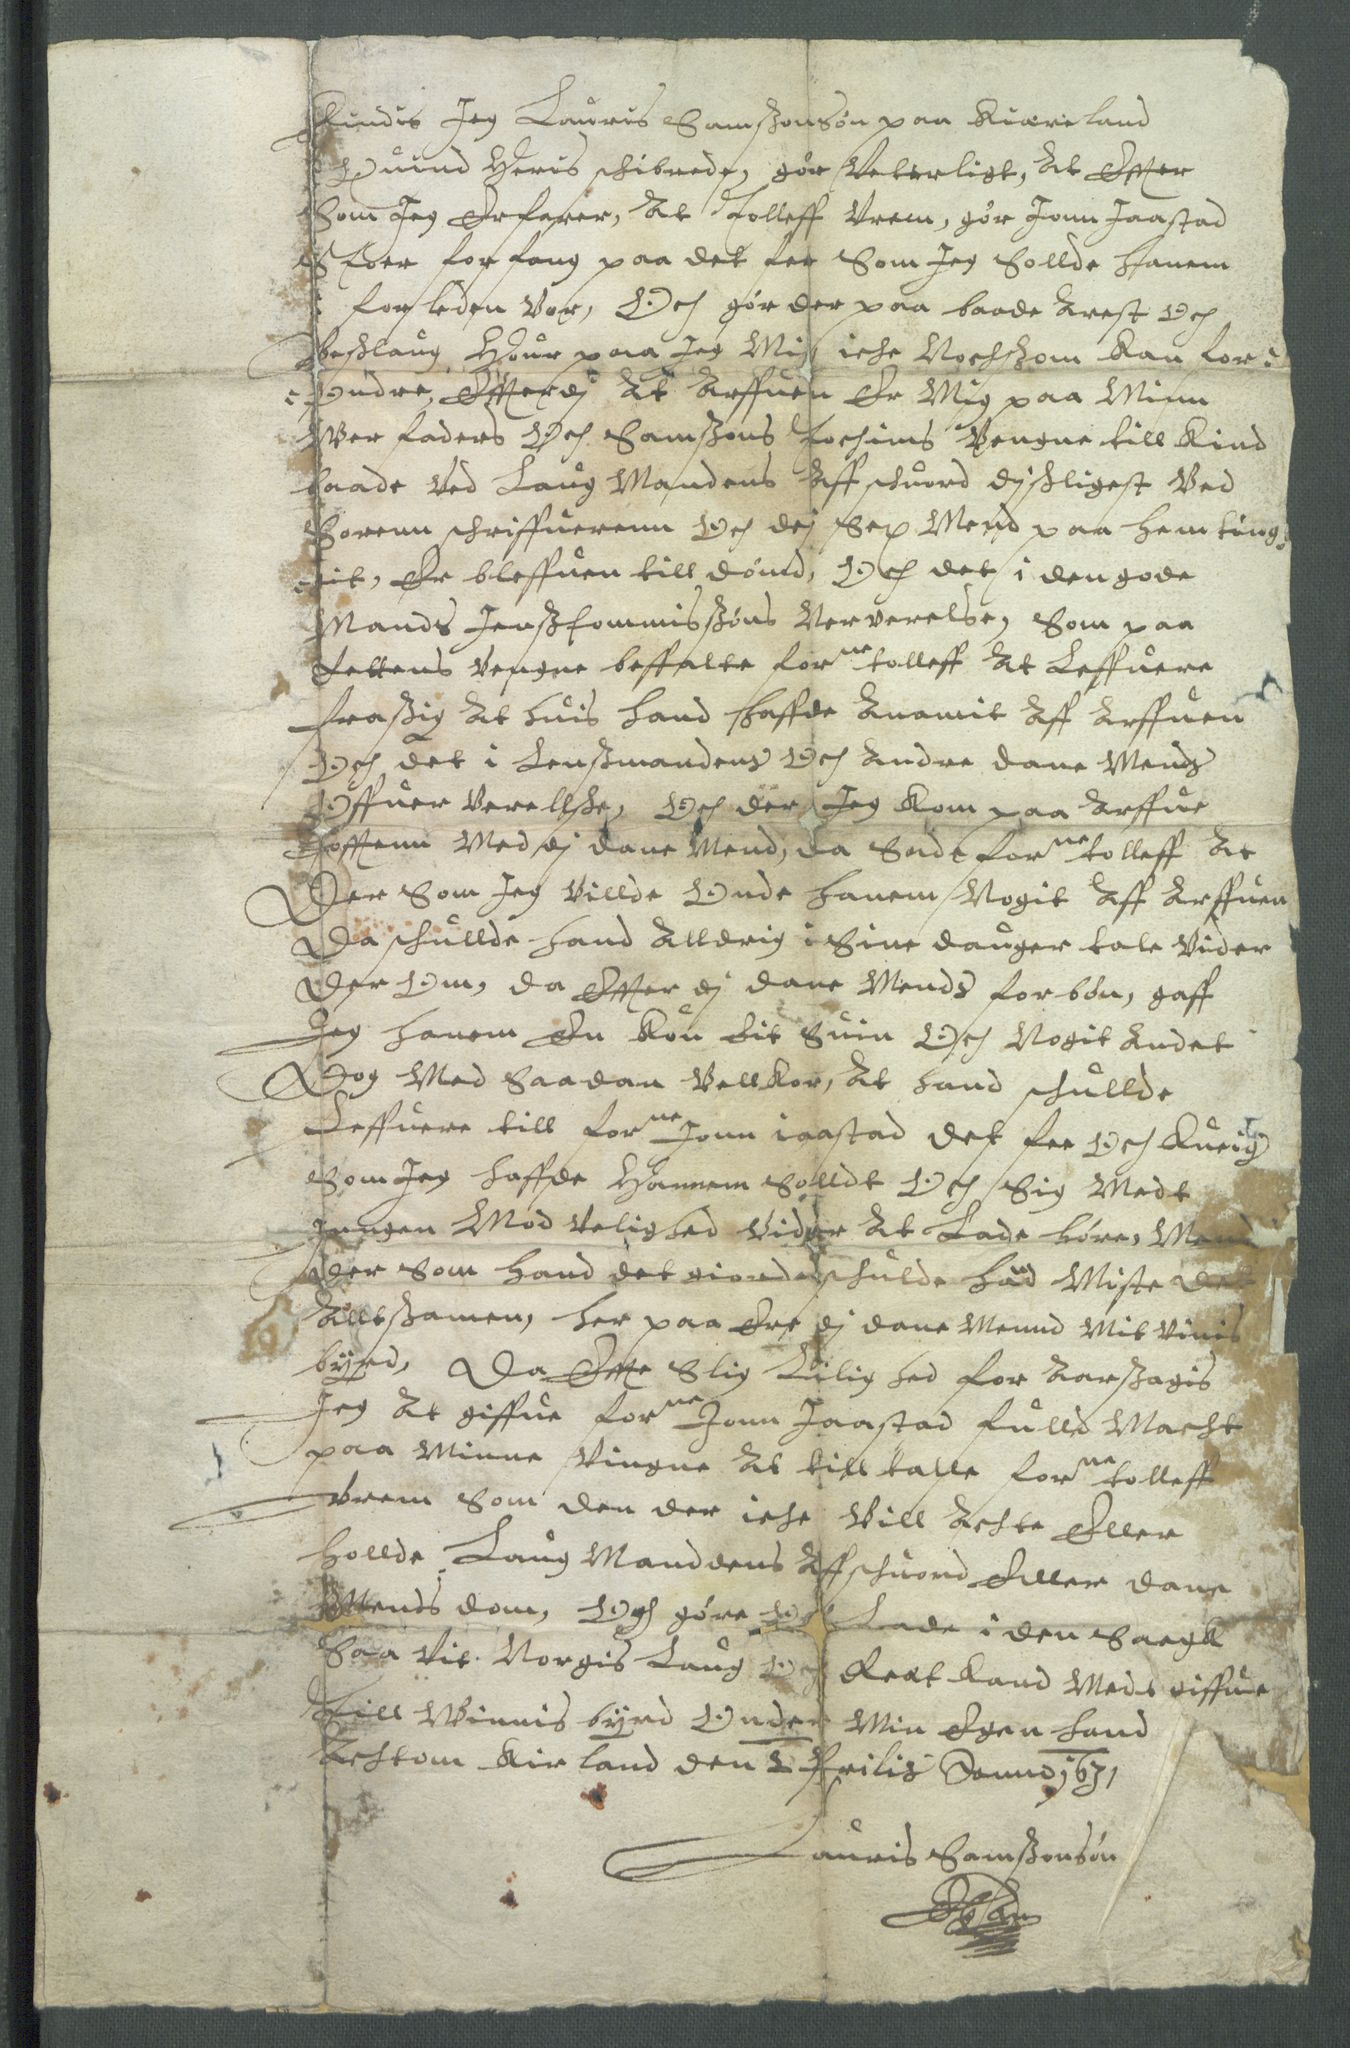 Kindis Jeg Lauris Samßonsøn paa Kiæreland
Quind Heris schibrede, gør Veterligt, At Effter
Som Jeg Erfarer, At Tolleff Vrem, gør Jonn Jaastad
Stoer forfang paa det fee Som Jeg Sollde hanem
forleden Vor, Och gør der paa baade Arest Och
Beßlaug, Huor paa Jeg Mig iche Nochßom Kan for
Vndre, Effterdj At Arffuen Er Mig paa Minn
Ver faders Och Samßons Jochims Vengne till Kind
baade Ved Laug Mandens Affschuord dißligest Ved
Sorenn schriffuerenn Och dej Sex Mend paa hemting
it, Er bleffuen till dømd, Och det i den gode
Mands Jenß Commisßøns Ververelse, Som paa
Rettens Vengne beffalte forne tolleff At Leffuere
fraßig At huis hand haffde Anamit Aff Arffuen
Och det i Lenßmandens Och Andre dane Mends
Offuer Verellße, Och der Jeg Kom paa Arffue
tofften Med dj dane Mend, da Sade forne tolleff At
Der Som Jeg Villde Onde hanem Nogit Aff Arffuen
Da schullde hand Alldrig i Sine dauger tale Vider
Der Om, da Effter dj dane Mends forbøn, gaff
Jeg hanem En Kou Lit Suin Och Nogit Andet
Dog Med Saadan Vellkor, At hand schullde
Leffuere till forne Jonn iaastad det fee Och Kueig
Som Jeg haffde Hannem Solldt Och Sig Medt
Jngen Mod Velighed Vider At Lade høre, Mend
der Som hand det giorde schulde hand Miste det
Alltßamen, her paa Ere dj dane Mennd Mit Vinis
byrd, Da Effter Slig Leilighed for Aarßagis
Jeg At giffue forne Jonn Jaastad fulld Macht
paa Minne Vengne At till talle forne tolleff
Vrem Som den der iche Vill Achte Eller
hollde Laug Manddens Affschuord Eller dane
Mends dom, Och gøre Och Lade i den Saegk
Saa Vit Norgis Laug Och Reet Kand Medt giffue
Till Vinnis byrd Onder Min Egen hand
Achtom Kirland den Aprilis Anno 1631
Lauris Samßonsøn